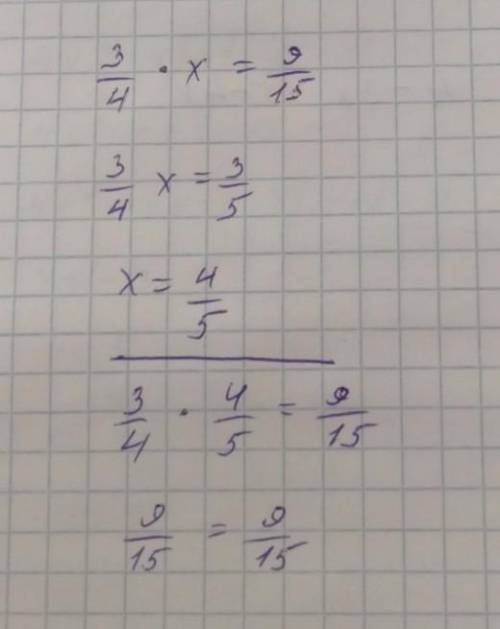 3/4 · x = 9/15
3/4 x = 3/5
x = 4/5
3/4 · 4/5 = 9/15
9/15 = 9/15